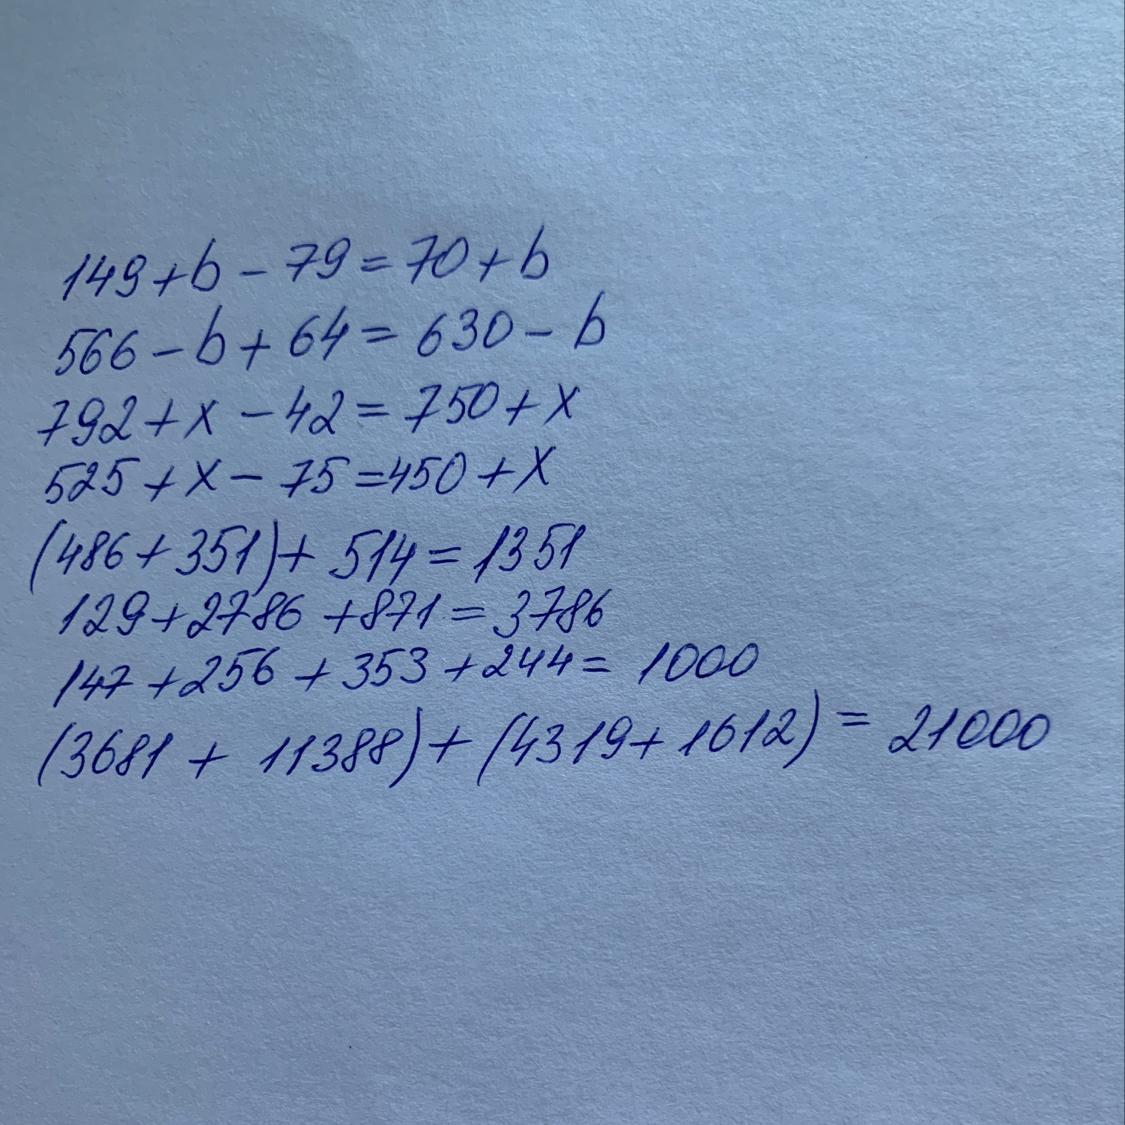 149+b-79=70+b
566-b+64=630-b
792+x-42=750+x
525+x-75=450+x
(486+351)+514=1351
129+2786+871=3786
147+256+353+244=1000
(3681+11388)+(4319+1612)=21000